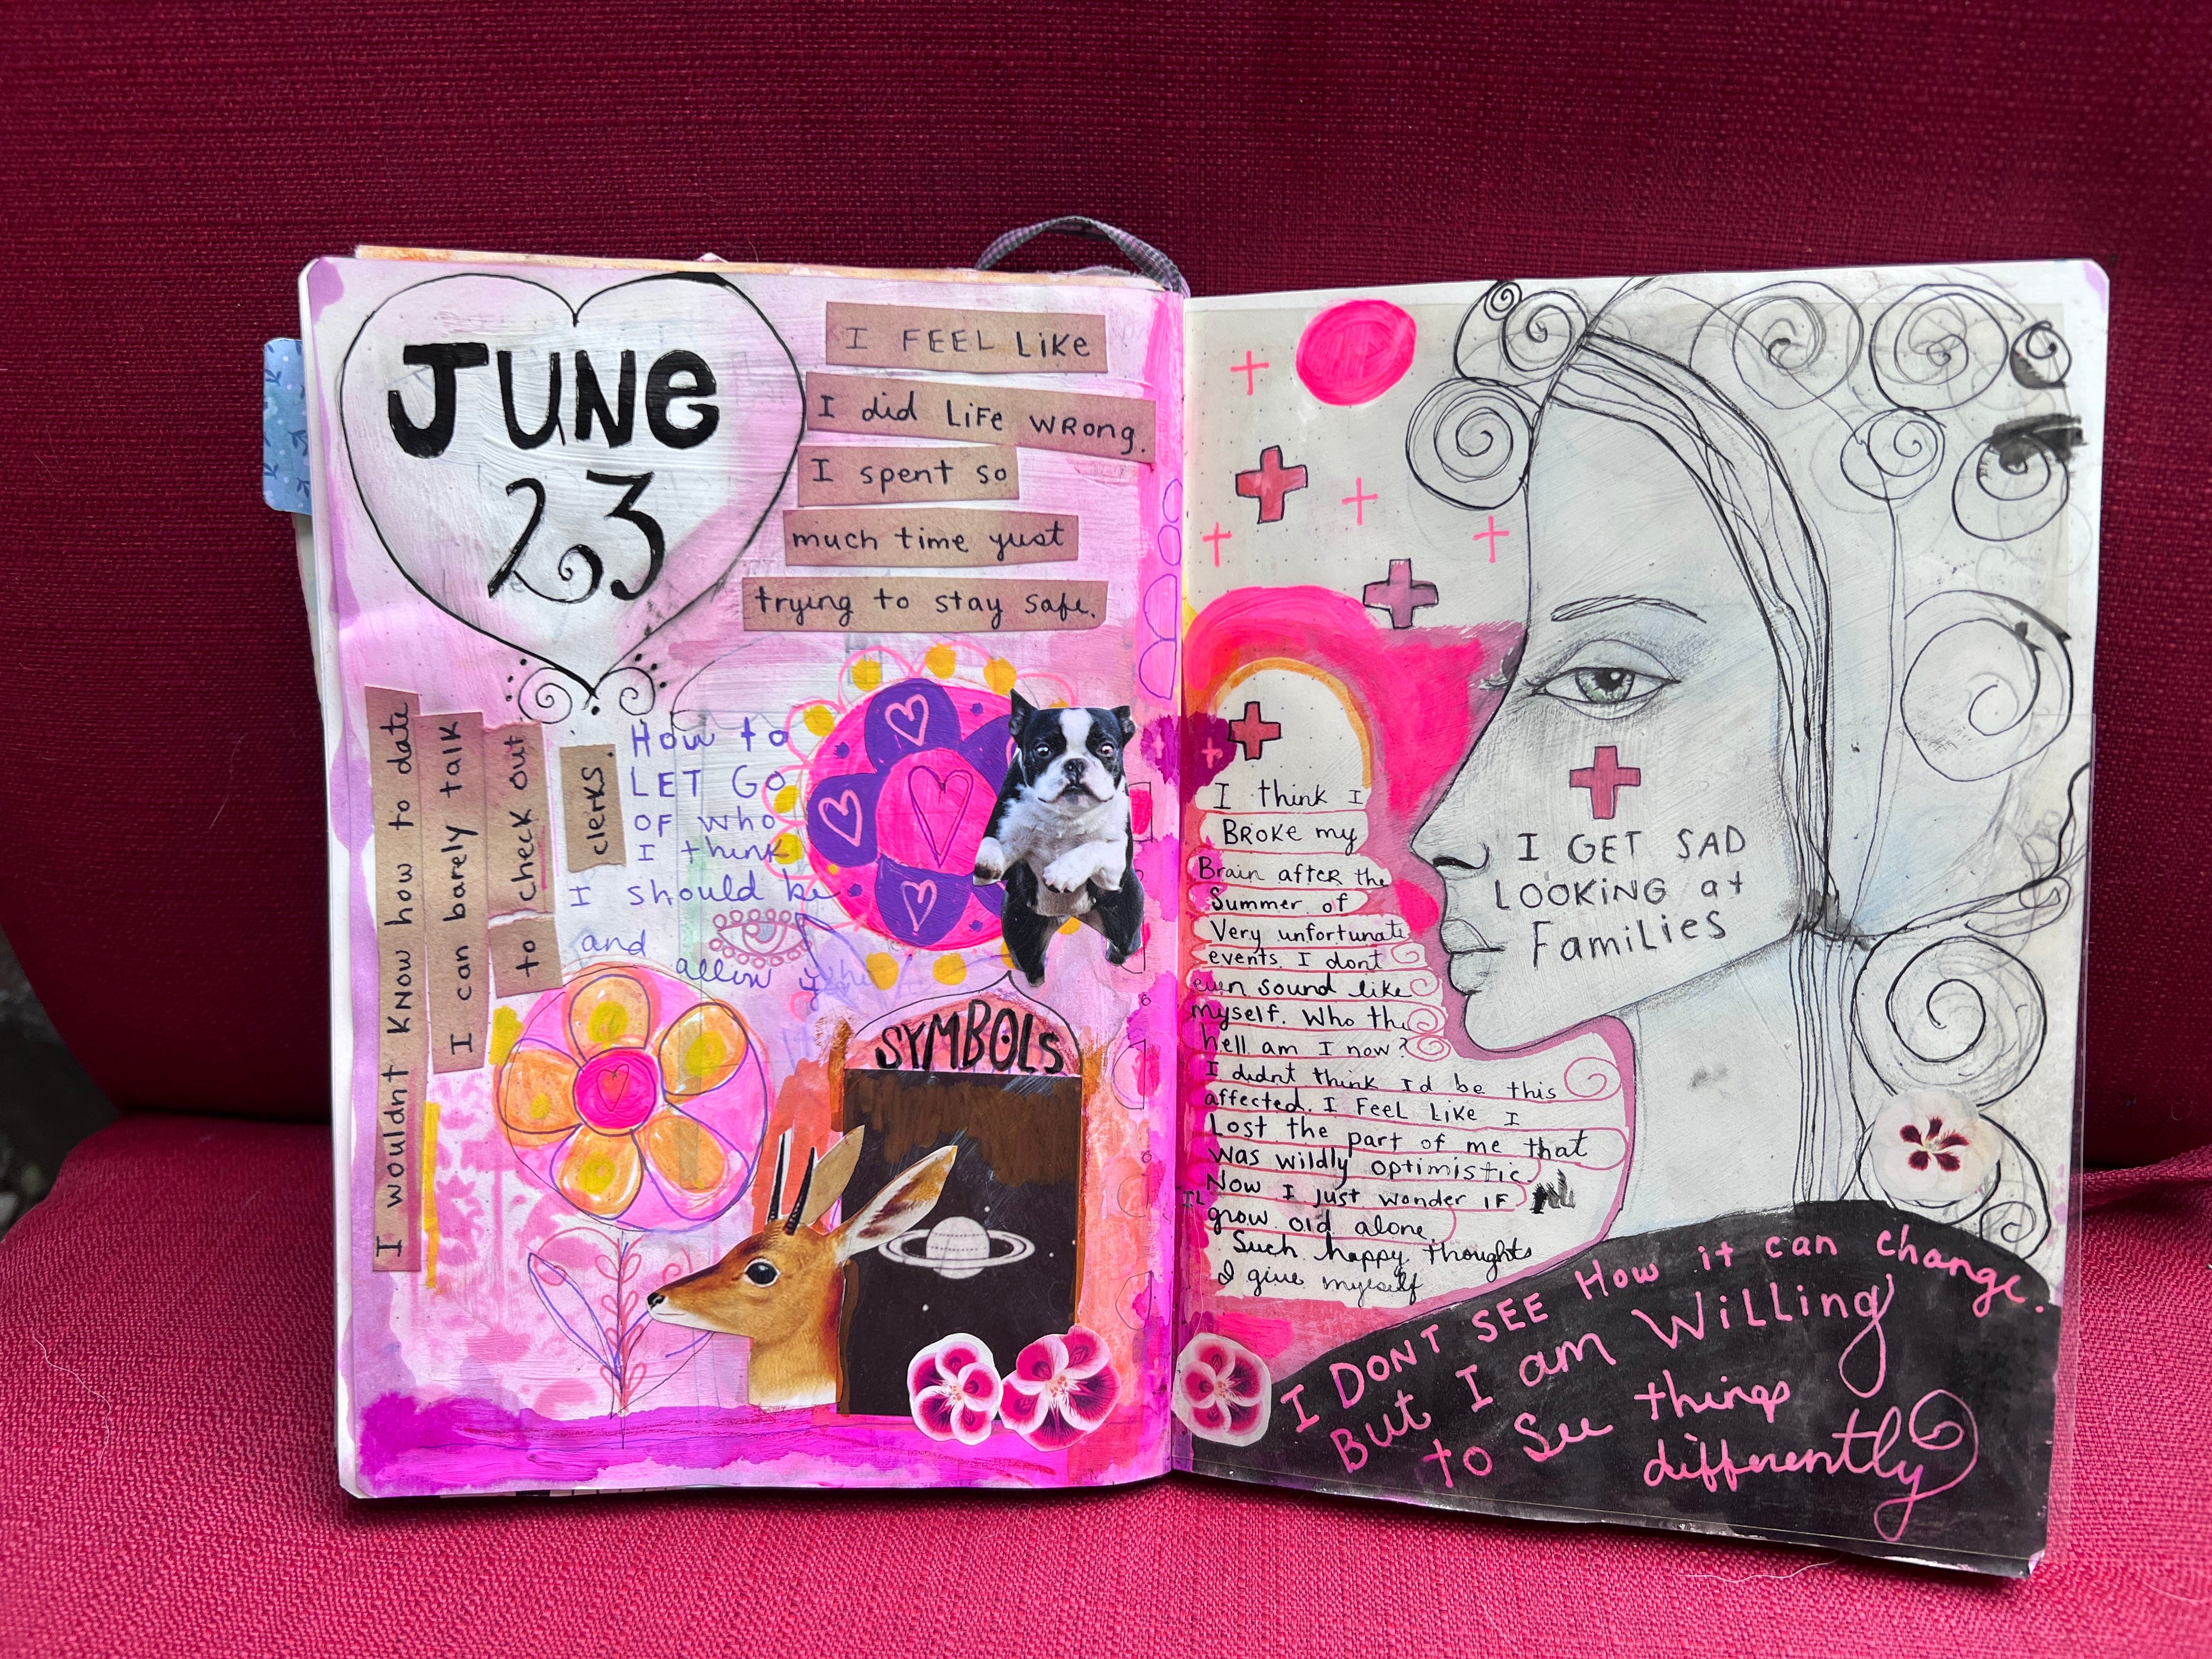 JUNE
23
I FEEL LiKE
I did LiFE WRong.
I spent so
much time just
trying to stay safe.
I wouldnt KNow how to date
I can barely talk
to check out
clerks.
How to
LET GO
OF who
I think
I should be
and
allow
SYMBOLS
I think I
BROKE my
Brain after the
Summer of
Very unfortunate
events. I dont
even sound like
myself. Who the
hell am I now?
I didnt think Id be this
affected. I FEEL LIKE I
Lost the part of me that
was wildly optimistic.
Now I just wonder IF Ill
grow old alone.
Such happy thoughts
I give myself
I GET SAD
LOOKiNG at
FamiLies
I DONT SEE How it can change.
But I am WiLLing
to See things
differently